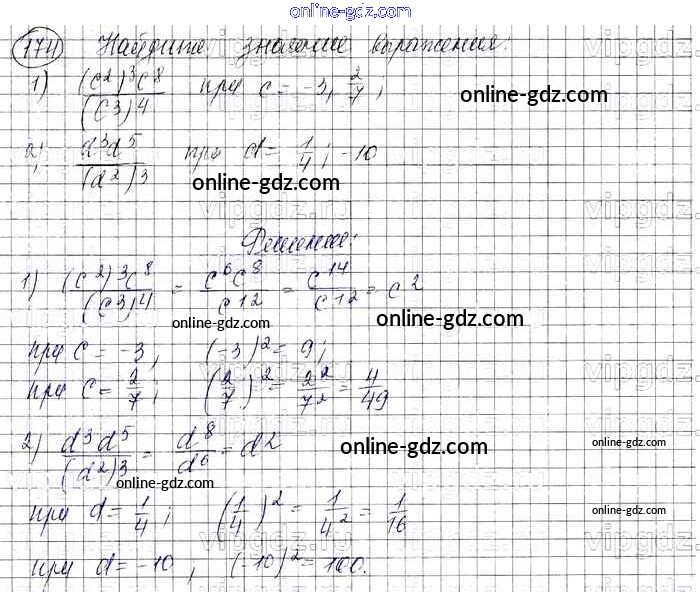 online-gdz.com
174 Найдите значение выражения:
1) (c²)³c⁸/(c³)⁴ при c = -3, 2/7; online-gdz.com
2) d³d⁵/(d²)³ при d = 1/4; -10
online-gdz.com
Решение:
1) (c²)³c⁸/(c³)⁴ = c⁶c⁸/c¹² = c¹⁴/c¹² = c²
online-gdz.com online-gdz.com
при c = -3, (-3)² = 9;
при c = 2/7; (2/7)² = 2²/7² = 4/49
2) d³d⁵/(d²)³ = d⁸/d⁶ = d² online-gdz.com online-gdz.com
online-gdz.com
при d = 1/4; (1/4)² = 1/4² = 1/16 online-gdz.com
при d = -10, (-10)² = 100.